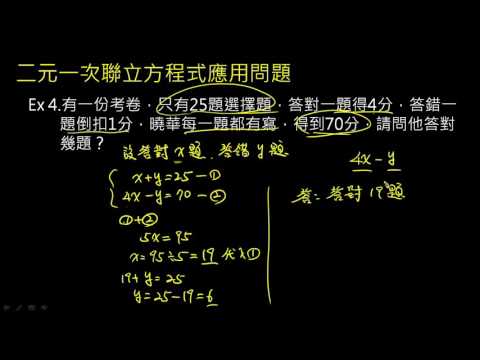 二元一次聯立方程式應用問題
Ex 4.有一份考卷，只有25題選擇題，答對一題得4分，答錯一
題倒扣1分，曉華每一題都有寫，得到70分，請問他答對
幾題？
設答對 x 題，答錯 y 題
x+y=25-①
4x-y=70-②
①+②
5x=95
x=95÷5=19 代入①
19+y=25
y=25-19=6
4x-y
答：答對19題